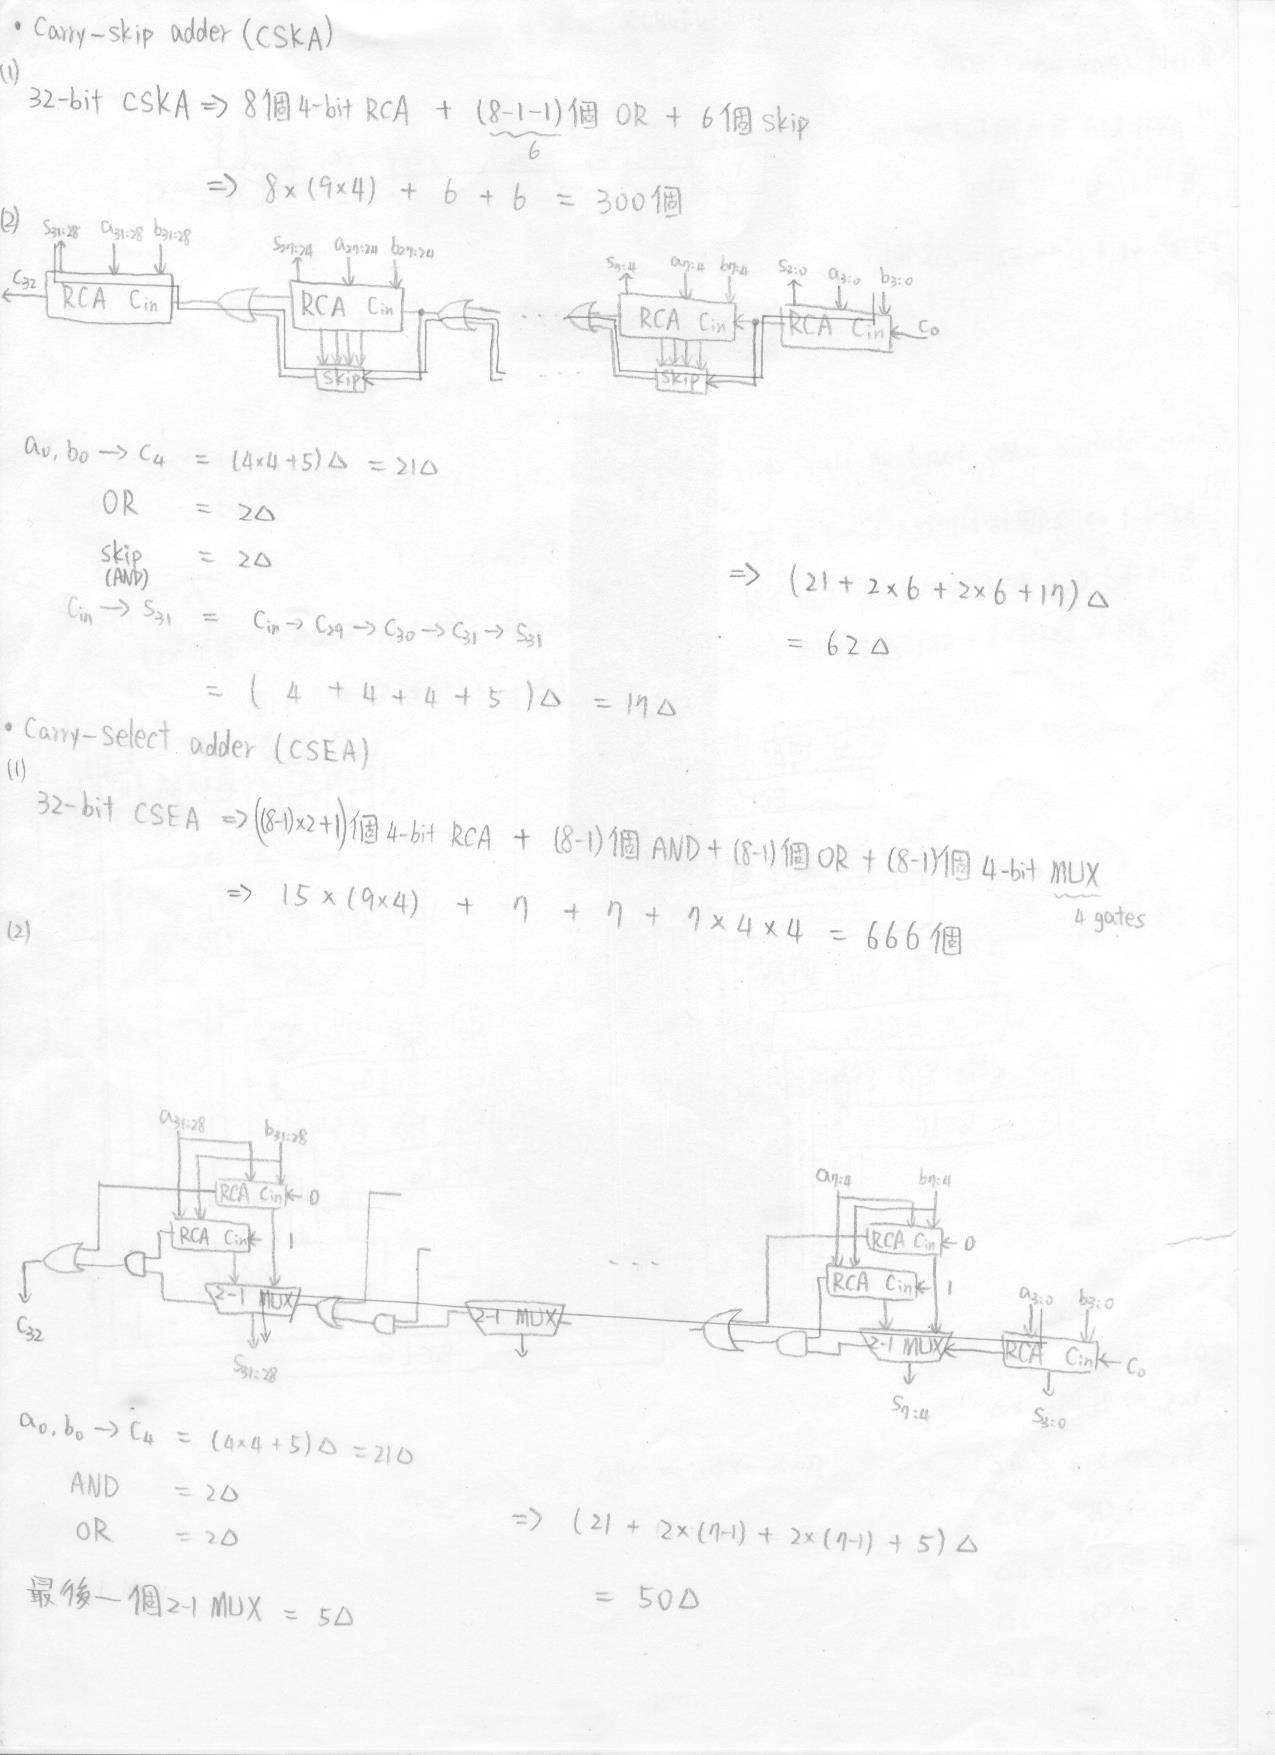 • Carry-skip adder (CSKA)
(1)
32-bit CSKA => 8個4-bit RCA + (8-1-1)個 OR + 6個 skip
6
=> 8×(9×4) + 6 + 6 = 300個
(2)
S31:28 a31:28 b31:28 S27:24 a27:24 b27:24 S7:4 a7:4 b7:4 S3:0 a3:0 b3:0
C32 RCA Cin RCA Cin ... RCA Cin RCA Cin C0
skip ... skip
a0, b0 → C4 = (4×4+5)Δ = 21Δ
OR = 2Δ
skip = 2Δ
(AND)
Cin → S31 = Cin → C29 → C30 → C31 → S31
= ( 4 + 4 + 4 + 5 )Δ = 17Δ
=> (21 + 2×6 + 2×6 + 17)Δ
= 62Δ
• Carry-select adder (CSEA)
(1)
32-bit CSEA => ((8-1)×2+1)個4-bit RCA + (8-1)個 AND + (8-1)個 OR + (8-1)個 4-bit MUX
4 gates
=> 15×(9×4) + 7 + 7 + 7×4×4 = 666個
(2)
a31:28 b31:28
RCA Cin 0
RCA Cin 1
2-1 MUX
C32
S31:28
...
2-1 MUX
a7:4 b7:4
RCA Cin 0
RCA Cin 1
2-1 MUX
S7:4
a3:0 b3:0
RCA Cin C0
S3:0
a0, b0 → C4 = (4×4+5)Δ = 21Δ
AND = 2Δ
OR = 2Δ
最後一個2-1 MUX = 5Δ
=> (21 + 2×(7-1) + 2×(7-1) + 5)Δ
= 50Δ